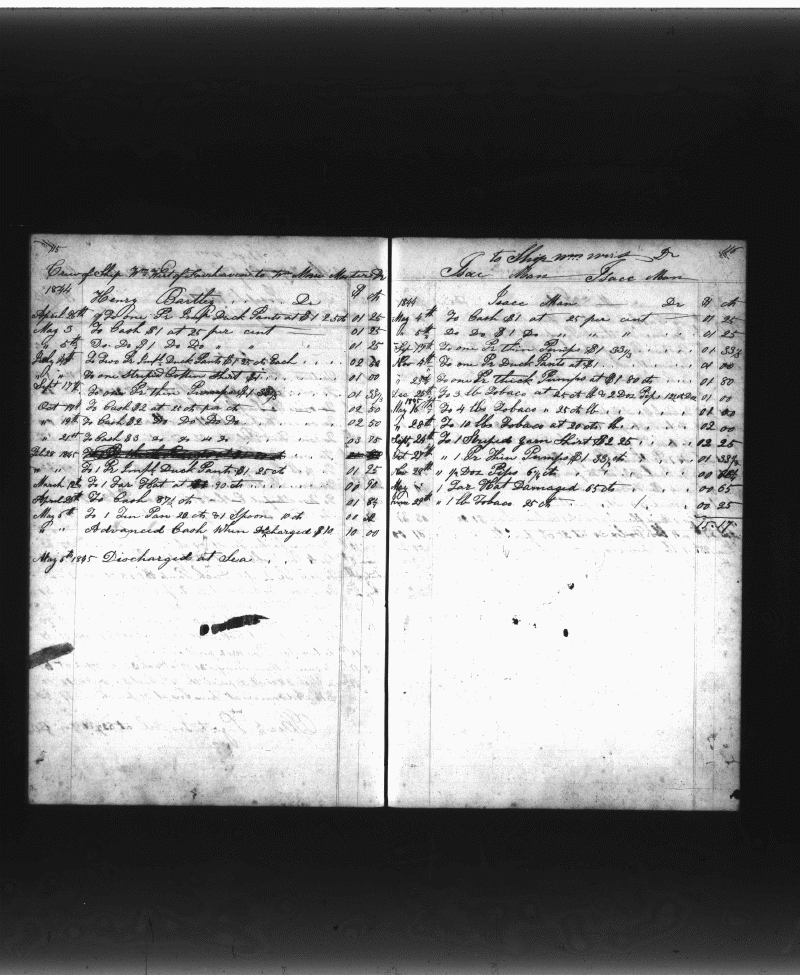 115
Crew of Ship Wm Wirt of Fairhaven to Wm Man Master Dr
1844 Henry Bartley Dr $ cts
April 26th To one Pr Impt Duck Pants at $1 25cts 01 25
May 3 To Cash $1 at 25 per cent 01 25
" 5th Do. Do $1 Do Do " " 01 25
July 4th To two Pr Impt Duck Pants $1 25 cts Each 02 50
" " To one Striped Cotten Shirt $1 01 00
Sept 17th To one Pr thin Pumps $1 33⅓ 01 33⅓
Oct 19th To Cash $2 at 25 cts per cts 02 50
" 19th To Cash $2 Do Do Do Do 02 50
" 21st To Cash $3 Do Do " Do 03 75
Feb 28 1845
" " To 1 Pr Impt Duck Pants $1 25 cts 01 25
March 12th To 1 Tar Hat at 90 cts 00 90
April 28th To Cash 87½ cts 01 84
May 6th To 1 Tin Pan 20 cts & 1 Spoon 10 cts 00
" " Advanced Cash When Discharged $10 10 00
May 6th 1845 Discharged at Sea
to Ship Wm Wirt Dr 115
Isac Man Isacc Man
1844 Isacc Man Dr $ cts
May 4th To Cash $1 at 25 per cent 01 25
" 5th Do Do $1 Do " " " 01 25
Sept 17th To one Pr thin Pumps $1 33⅓ 01 33⅓
Nov 4th To one Pr Duck Pants at $1 01 00
" 27th To one Pr thick Pumps at $1 80 cts 01 80
Dec 25th To 3 lb Tobaco at 25 cts lb & 2 Doz Pips 12½ cts Doz 01 00
May 16th 1845 To 4 lbs Tobaco " 25 cts lb 01 00
" 28th To 10 lbs Tobaco at 20 cts lb 02 00
Sept 26th To 1 Striped Gam Shirt $2 25 02 25
Oct 27th " 1 Pr Thin Pumps $1 33⅓ cts 01 33⅓
Nov 28th " ½ Doz Pips 6¼ cts 00
May " 1 Tar Hat Damaged 65 cts 00 65
June 28th " 1 lb Tobaco 25 cts 00 25
15 17